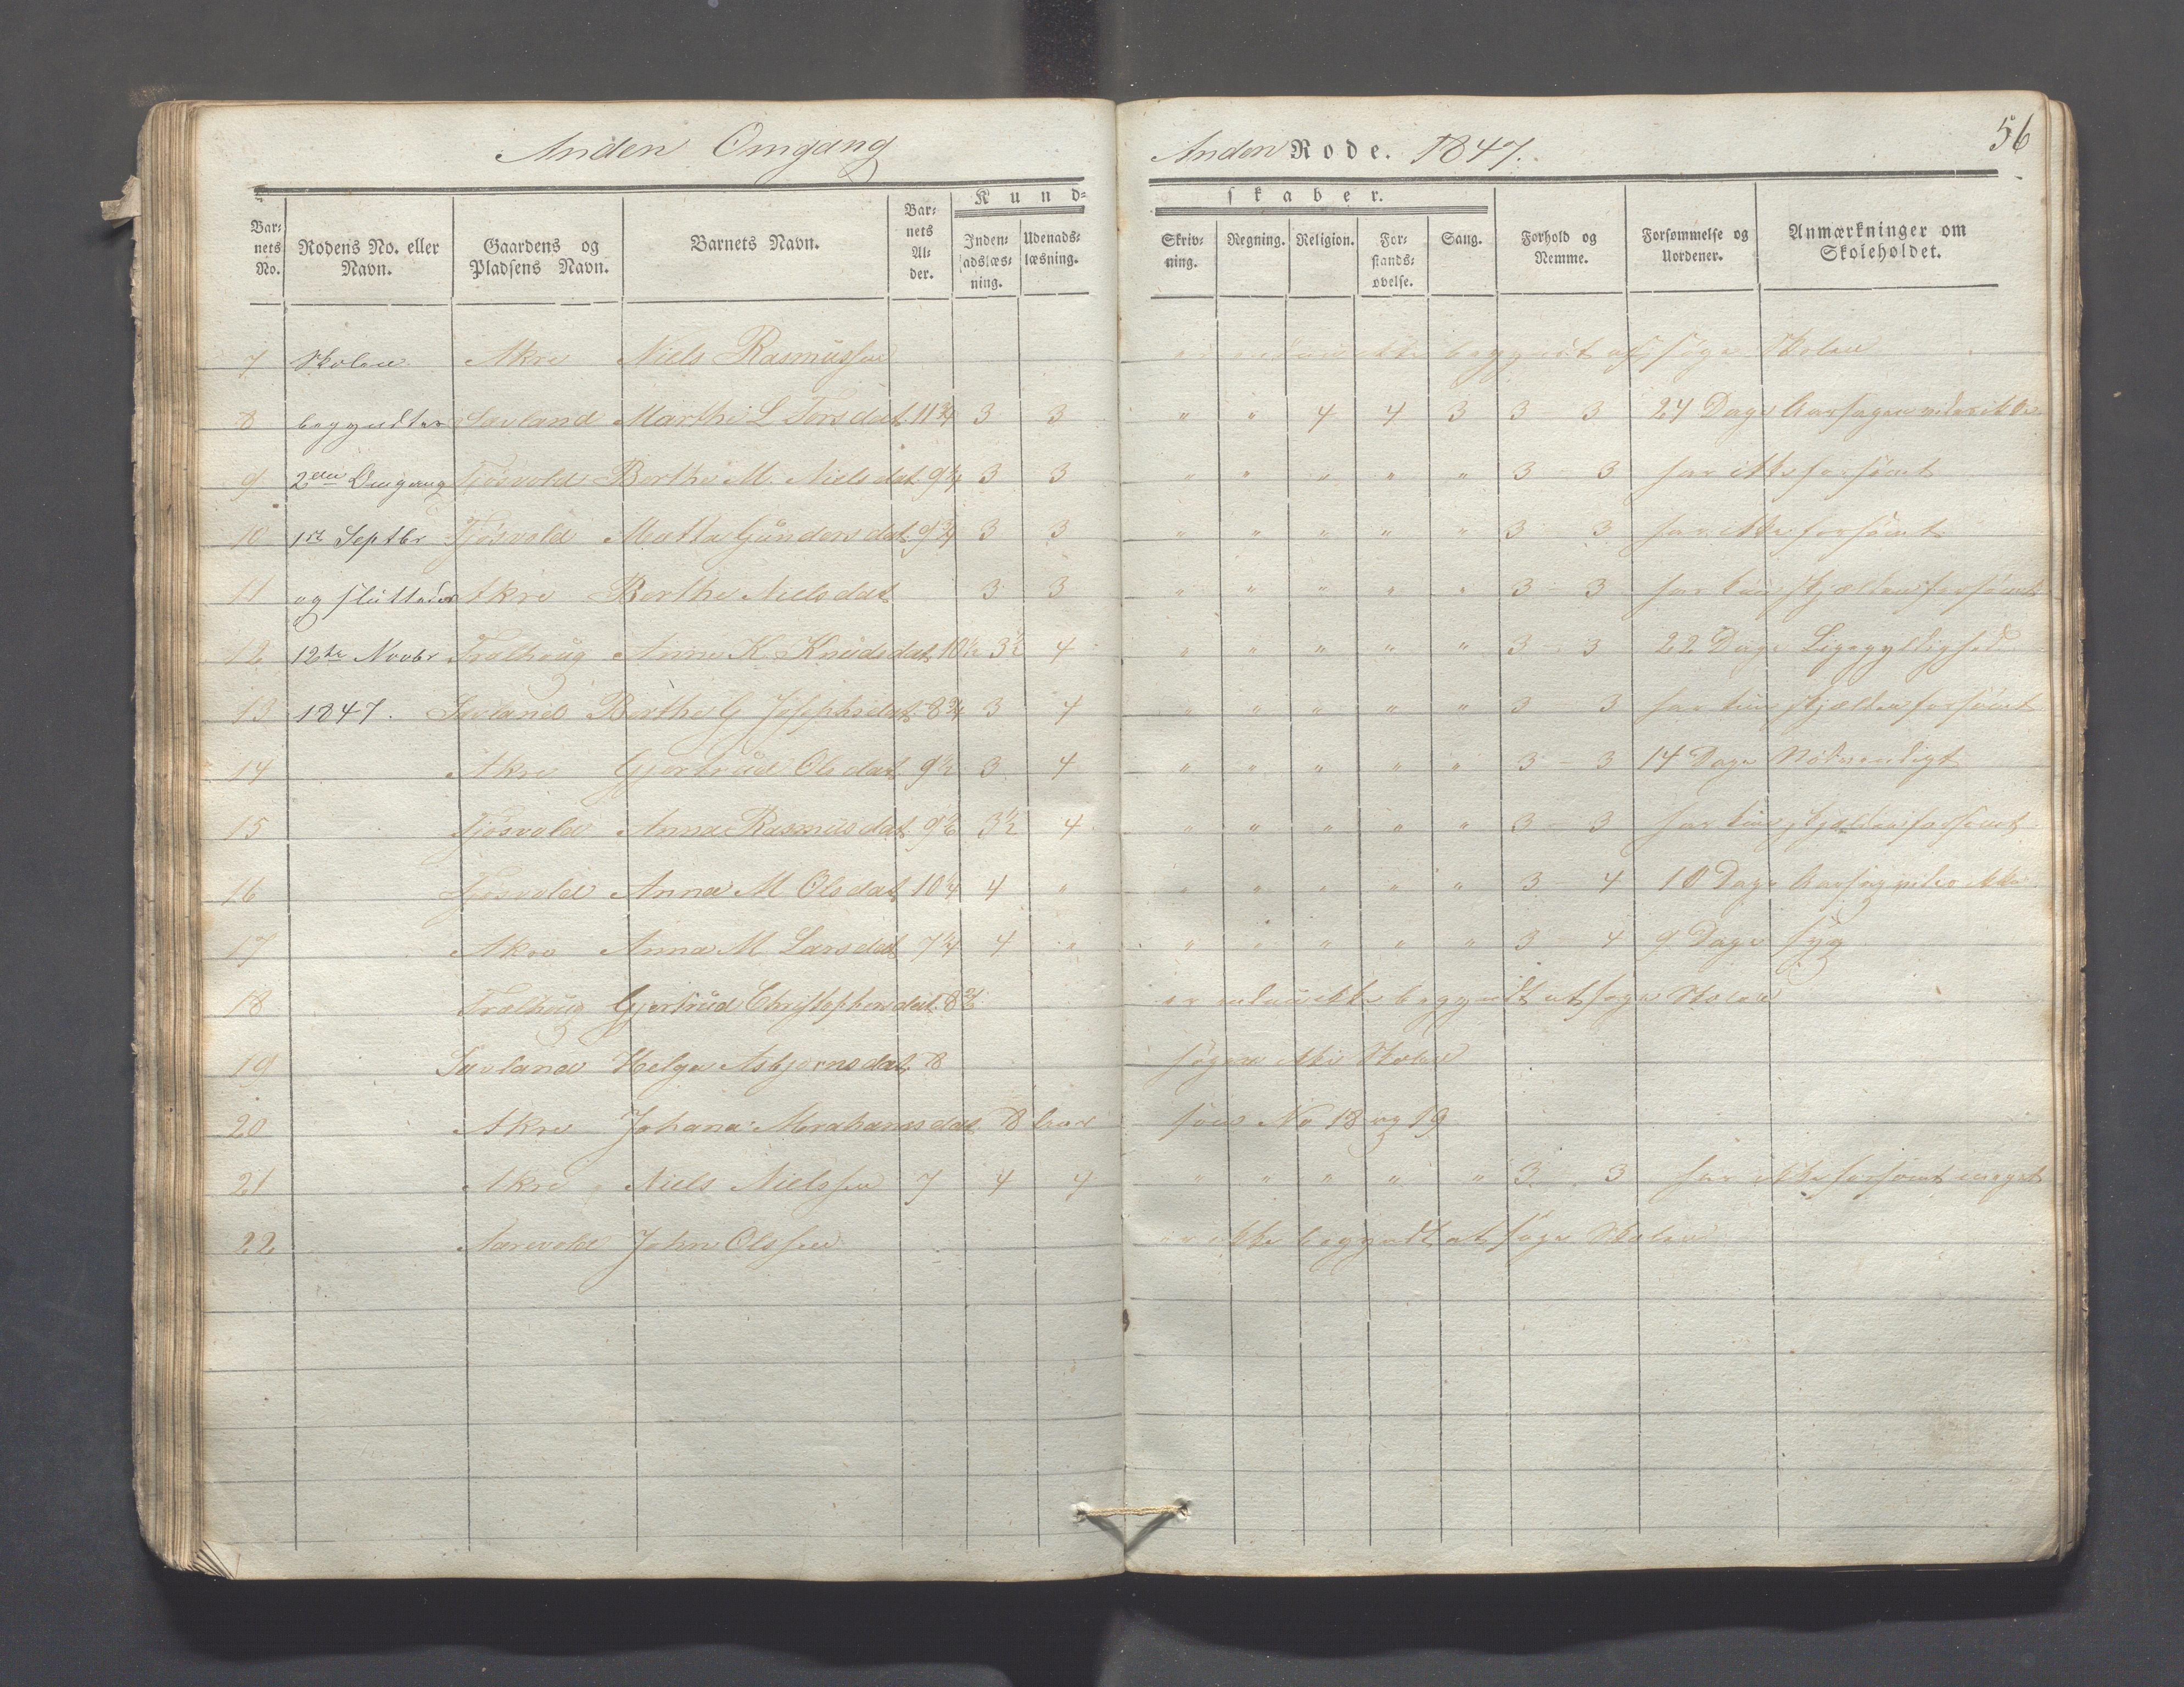 Anden Omgang
Anden Rode. 1847.
56
Kund-
skaber.
Bar-
nets
No.
Rodens No. eller
Navn.
Gaardens og
Pladsens Navn.
Barnets Navn.
Bar-
nets
Al-
der.
Inden-
adslæs-
ning.
Udenads-
læsning.
Skriv-
ning.
Regning.
Religion.
For-
stands-
øvelse.
Sang.
Forhold og
Nemme.
Forsømmelse og
Uordener.
Anmærkninger om
Skoleholdet.
7 Skolen Akre Niels Rasmussen er endnu ikke begyndt at søge Skolen
8 begyndter Savland Marthe L Torsdat. 11 3/4 3 3 " " 4 4 3 3 3 24 Dage Aarsagen
9 2den Omgang Tjøsvold Berthe M. Nielsdat. 9 1/4 3 3 " " " " " 3 - 3 har ikke forsømt
10 1ste Septbr Tjøsvold Matta Gundersdat. 9 3/4 3 3 " " " " " 3 - 3 har ikke forsømt
11 og sluttedes Akre Berthe Nielsdat 3 3 " " " " " 3 - 3 har kun sjælden forsømt
12 12te Novbr Trælhoug Anne K Knudsdat. 10 1/2 3 1/2 4 " " " " " 3 - 3 22 Dage Ligegyldighed
13 1847. Savland Berthe G Josephsdat. 8 3/4 3 4 " " " " " 3 3 har kun sjælden forsømt
14 Akre Gjertrud Olsdat. 9 1/2 3 4 " " " " " 3 - 3 14 Dage Nødvendigt
15 Tjøsvold Anna Rasmusdat. 9 1/2 3 1/2 4 " " " " " 3 - 3 har kun sjælden forsømt
16 Tjøsvold Anna M Olsdat. 10 1/4 4 " " " " " " 3 - 4 10 Dage Aarsag
17 Akre Anna M Larsdat 7 1/4 4 " " " " " " 3 - 4 9 Dage syg
18 Trælhoug Gjertrud Christophersdat. 8 1/2 er endnu ikke begyndt at søge Skolen
19 Savland Helga Asbjørnsdat. 8 søger ikke Skolen
20 Akre Johana Abrahamsdat 8 som No 18 og 19
21 Akre Niels Nielssen 7 4 4 " " " " " 3 - 3 har ikke forsømt meget
22 John Olssen er ikke begyndt at søge Skolen